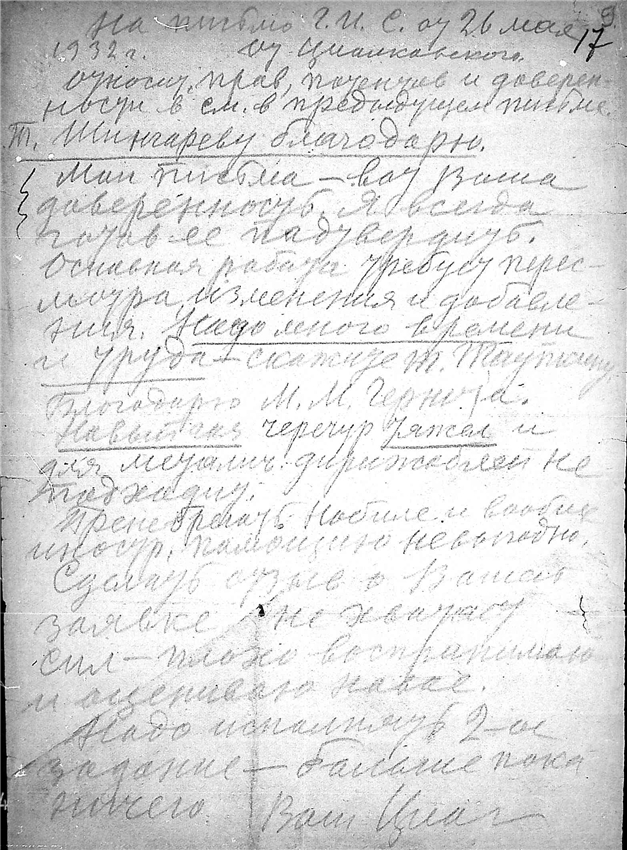 9
На письмо Г. И. С. от 26 мая 17
1932 г. От Циолковского.
Относит. прав, патентов и доверен-
ности в см. в предыдущем письме.
Т. Шингареву благодарю.
Мои письма – вот Ваша
доверенность. Я всегда
готов ее подтвердить.
Основная работа требует перес-
мотра, изменения и добавле-
ния. Надо много времени
и труда – скажите т.
Благодарю М. М.
Новый газ черечур тяжел и
для металич. дирижаблей не
подходит.
Пренебрегать Нобиле и вообще
иностр. помощию невыгодно.
Сделать отзыв о Вашей
заявке не хватает
сил – плохо воспринимаю
и оцениваю новое.
Надо исполнять 2-ое
задание – больше пока
ничего. Ваш Циол